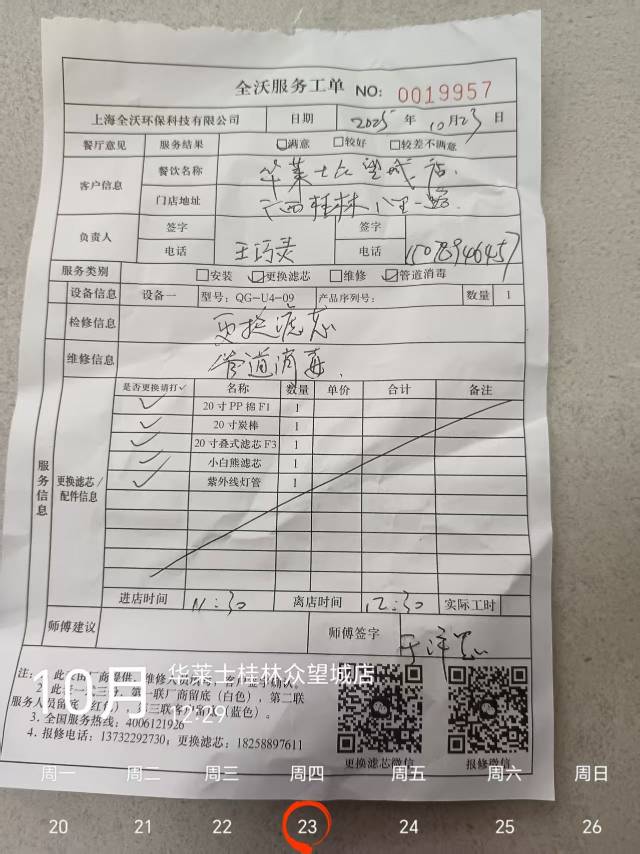 全沃服务工单 NO: 0019957
上海全沃环保科技有限公司 日期 2025年10月23日
餐厅意见 服务结果 ☑满意 □较好 □较差不满意
客户信息 餐饮名称 华莱士众望城店
门店地址 广西桂林八里一路
负责人 签字 王巧灵 签字
电话 电话 15078946457
服务类别 □安装 ☑更换滤芯 □维修 ☑管道消毒
设备信息 设备一 型号: QG-U4-09 产品序列号: 数量 1
检修信息 更换滤芯
维修信息 管道消毒
服务信息 更换滤芯/配件信息
是否更换请打✓ 名称 数量 单价 合计 备注
✓ 20寸PP棉F1 1
✓ 20寸炭棒 1
✓ 20寸叠式滤芯F3 1
✓ 小白熊滤芯 1
✓ 紫外线灯管 1
进店时间 11:30 离店时间 12:30 实际工时
师傅建议 师傅签字
10月 华莱士桂林众望城店
12:29
服务人员留底
第三联客户留底(蓝色)。
3. 全国服务热线: 4006121926
4. 报修电话: 13732292730; 更换滤芯: 18258897611
更换滤芯微信 报修微信
周一 周二 周三 周四 周五 周六 周日
20 21 22 23 24 25 26